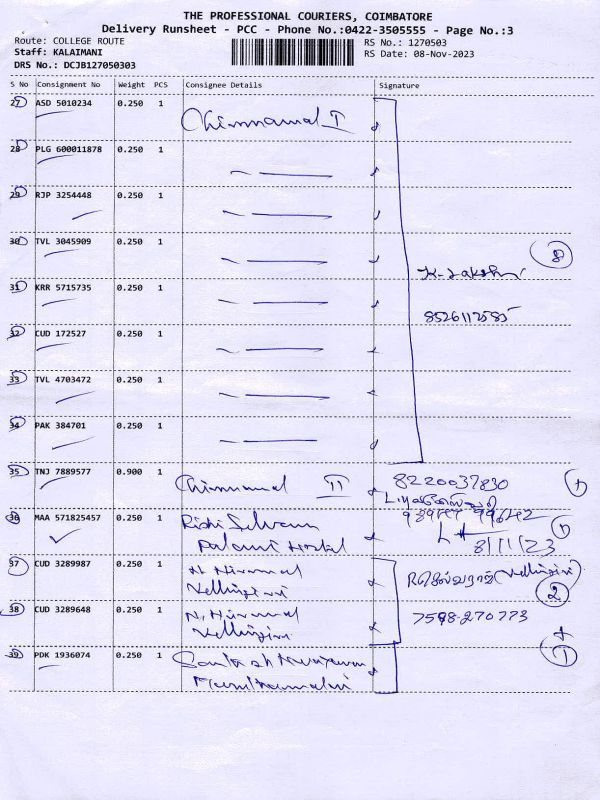 THE PROFESSIONAL COURIERS, COIMBATORE
Delivery Runsheet - PCC - Phone No.:0422-3505555 - Page No.:3
Route: COLLEGE ROUTE
RS No.: 1270503
Staff: KALAIMANI
RS Date: 08-Nov-2023
DRS No.: DCJB127050303
S No Consignment No Weight PCS Consignee Details Signature
27 ASD 5010234 0.250 1 Chinnamal I
28 PLG 600011878 0.250 1
29 RJP 3254448 0.250 1
30 TVL 3045909 0.250 1
8
31 KRR 5715735 0.250 1
8526112585
32 CUD 172527 0.250 1
33 TVL 4703472 0.250 1
34 PAK 384701 0.250 1
35 TNJ 7889577 0.900 1 Chinnamal II 8220037830
1
36 MAA 571825457 0.250 1 Rishi Selvam
Palami Hostel
8/11/23
37 CUD 3289987 0.250 1 N. Nirmal
Vellingiri
2
38 CUD 3289648 0.250 1 N. Nirmal 7598-270773
Vellingiri
39 PDK 1936074 0.250 1
1